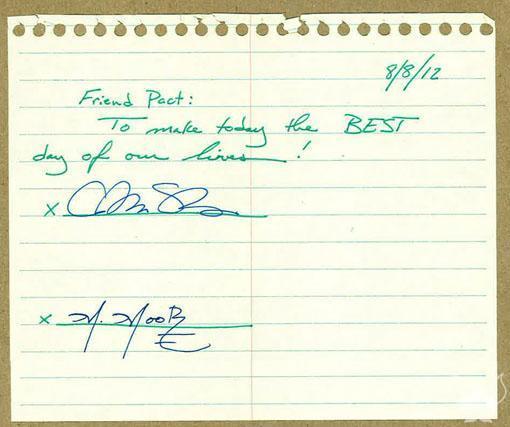 8/8/12
Friend Pact:
To make today the BEST
day of our lives!
x
x